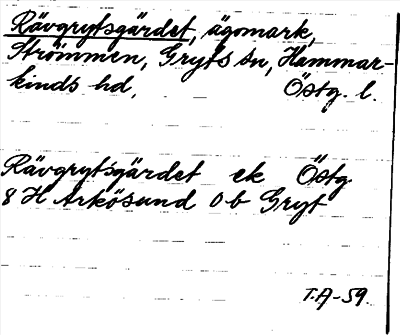 Rävgrytsgärdet, ägomark,
Strömmen, Gryts sn, Hammar-
kinds hd, Östg. l.
Rävgrytsgärdet ek Östg
8 H Arkösund Ob Gryt
T.A-59.